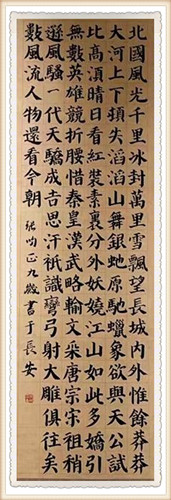 北國風光千里冰封萬里雪飄望長城內外惟餘莽莽
大河上下頓失滔滔山舞銀蛇原馳蠟象欲與天公試
比高須晴日看紅裝素裹分外妖嬈江山如此多嬌引
無數英雄競折腰惜秦皇漢武略輸文采唐宗宋祖稍
遜風騷一代天驕成吉思汗祇識彎弓射大雕俱往矣
數風流人物還看今朝 九歲書于長安